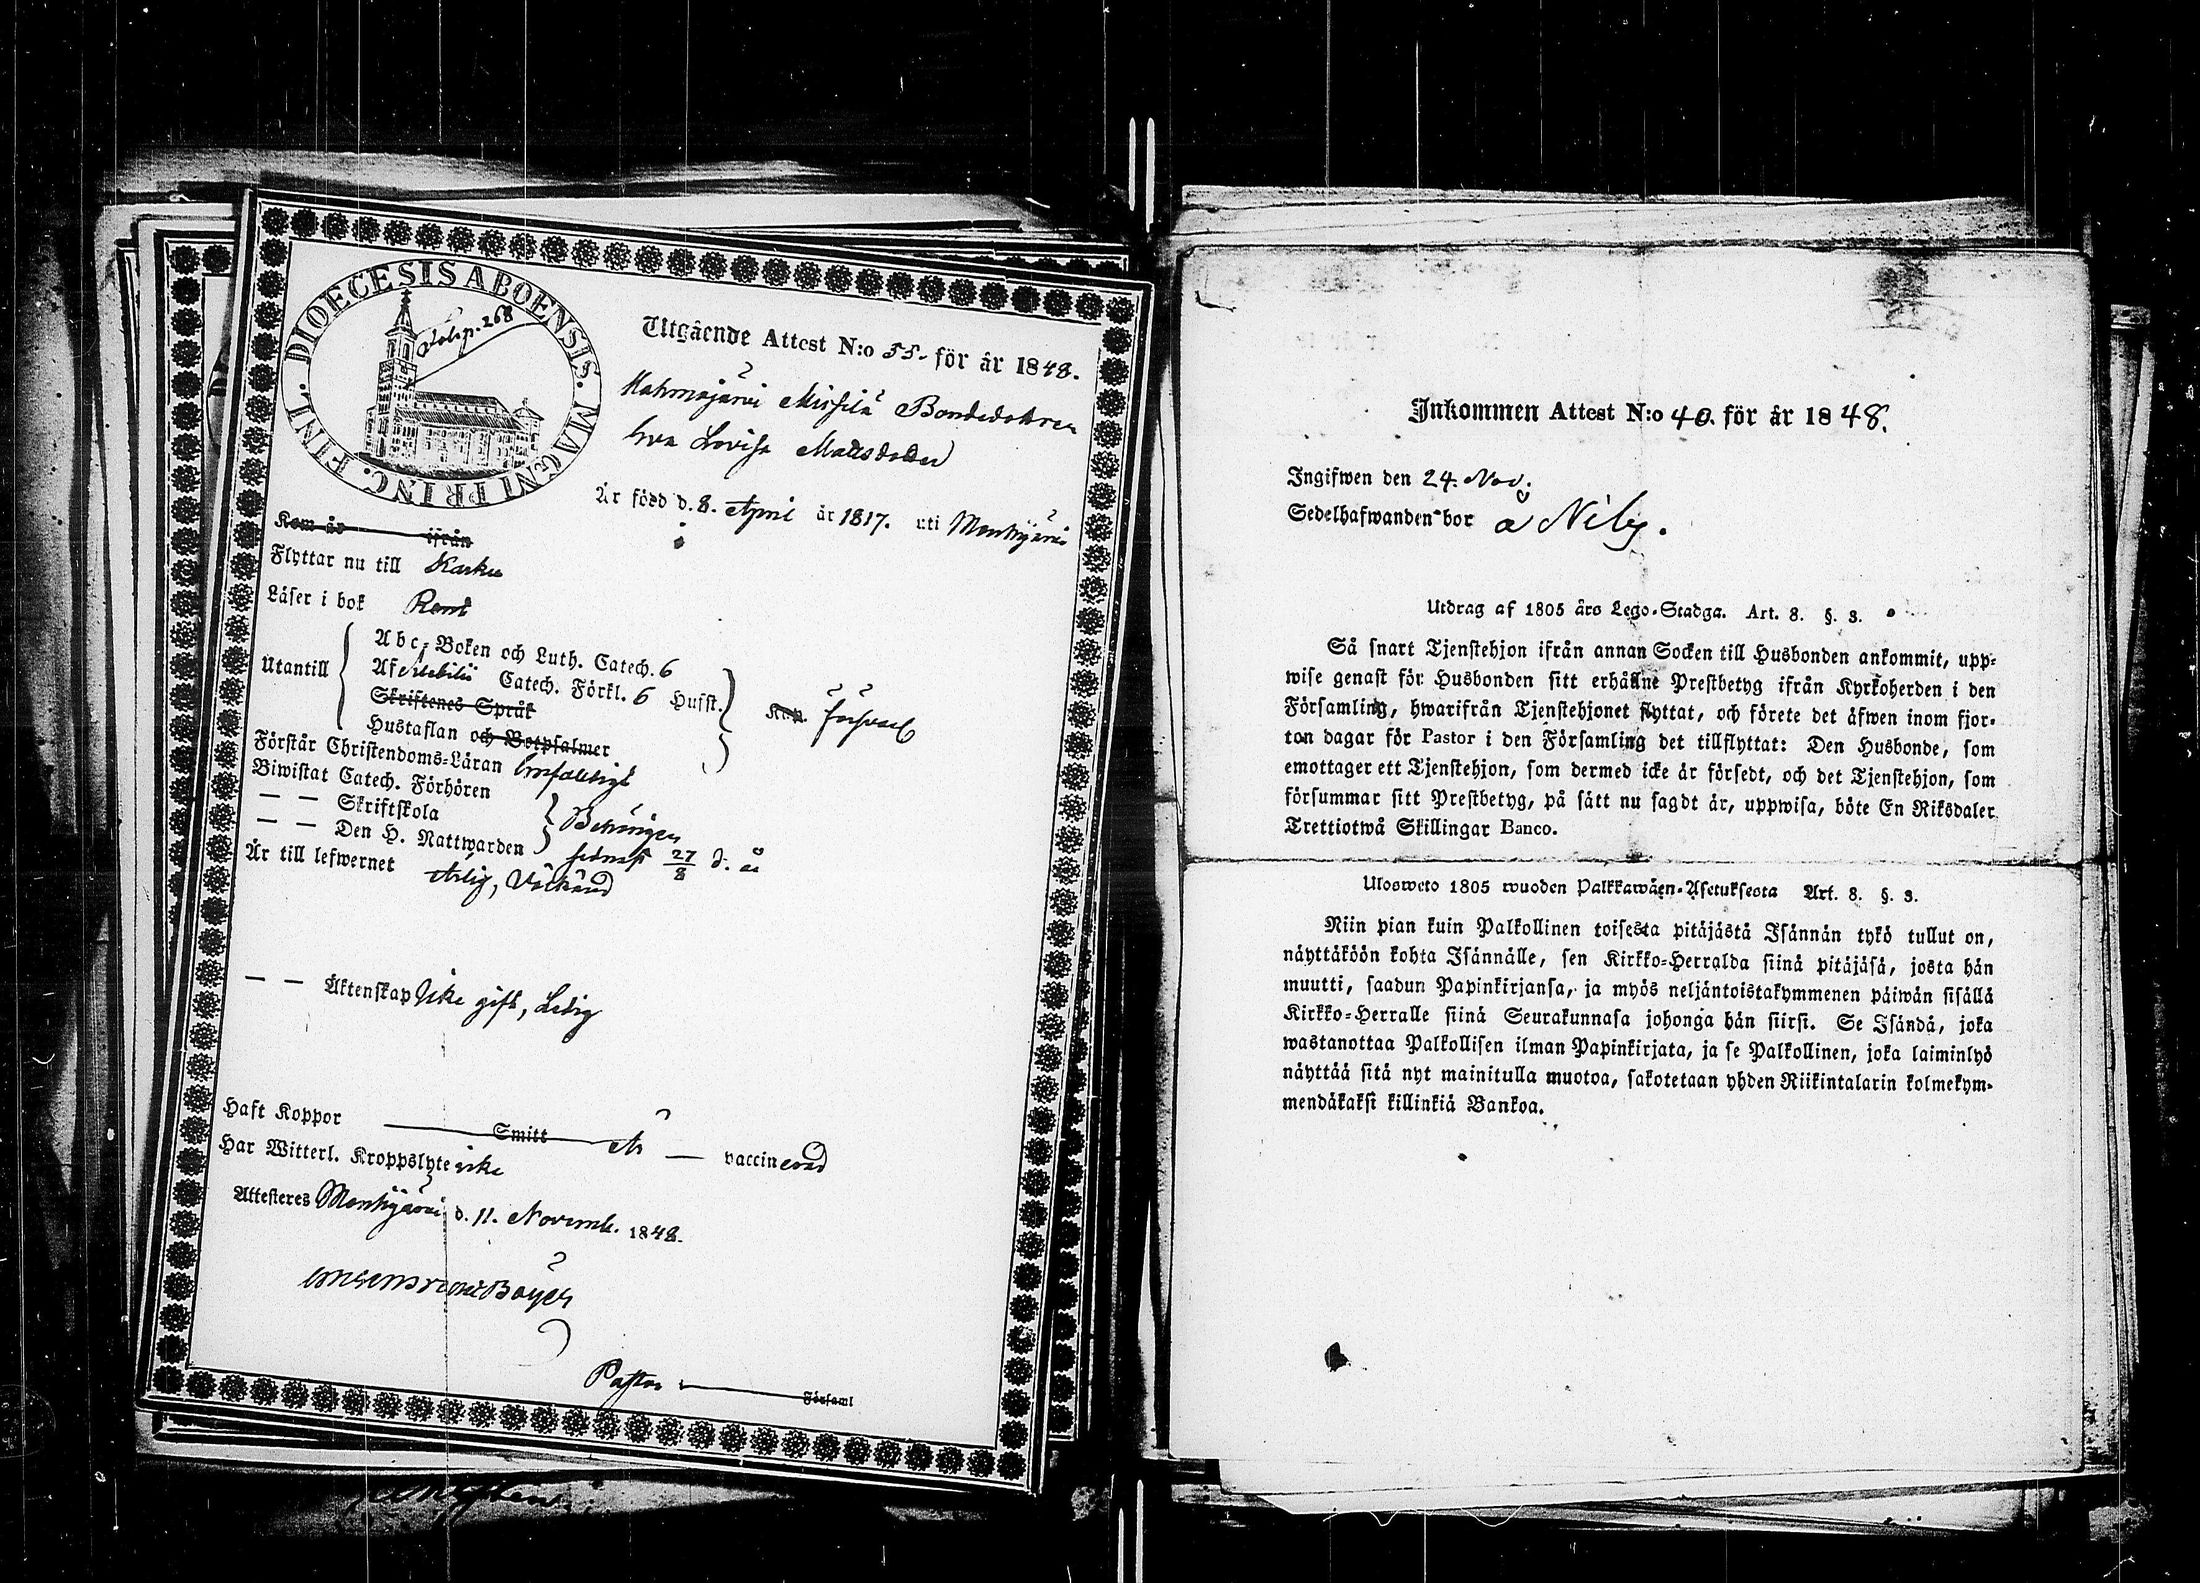 DIOECESIS ABOENSIS. MAGNI PRINC. FINL.
pag. 268
Utgående Attest N:o 55. för år 1848.
Bondedottren
Eva Lovisa Mattsdotter
Är född d. 8. April år 1817. uti Mouhijärvi
Kom år ifrån
Flyttar nu till Karku
Läser i bok Rent
Utantill
Abc-Boken och Luth. Catech. 6
Af Catech. Förkl. 6 Husst.
Skriftenes Språk
Hustaflan och Botpsalmer
försvarl
Förstår Christendoms-Läran Enfaldigt
Biwistat Catech. Förhören
— — Skriftskola
Behörigen
— — Den H. Nattwarden sednast 27/8 d. å
Är till lefwernet Ärlig, Välkänd
— — Äktenskap Icke gift, Ledig
Haft Koppor Smitt Är — vaccinerad
Har Witterl. Kroppslyte icke
Attesteres Mouhijärvi d. 11. Novemb. 1848.
Pastor Församl
Inkommen Attest N:o 40. för år 1848.
Ingifwen den 24. Nov.
Sedelhafwanden bor å Niby.
Utdrag af 1805 års Lego-Stadga. Art. 8. §. 3.
Så snart Tjenstehjon ifrån annan Socken till Husbonden ankommit, upp-
wise genast för Husbonden sitt erhållne Prestbetyg ifrån Kyrkoherden i den
Församling, hwarifrån Tjenstehjonet flyttat, och förete det äfwen inom fjor-
ton dagar för Pastor i den Församling det tillflyttat: Den Husbonde, som
emottager ett Tjenstehjon, som dermed icke är försedt, och det Tjenstehjon, som
försummar sitt Prestbetyg, på sätt nu sagdt är, uppwisa, böte En Riksdaler
Trettiotwå Skillingar Banco.
Ulosweto 1805 wuoden Palkkawäen-Asetuksesta Art. 8. §. 3.
Niin pian kuin Palkollinen toisesta pitäjästä Isännän tykö tullut on,
näyttäköön kohta Isännälle, sen Kirkko-Herralda siinä pitäjäsä, josta hän
muutti, saadun Papinkirjansa, ja myös neljäntoistakymmenen päiwän sisällä
Kirkko-Herralle siinä Seurakunnasa johonga hän siirsi. Se Isändä, joka
wastanottaa Palkollisen ilman Papinkirjata, ja se Palkollinen, joka laiminlyö
näyttää sitä nyt mainitulla muotoa, sakotetaan yhden Riikintalarin kolmekym-
mendäkaksi killinkiä Bankoa.